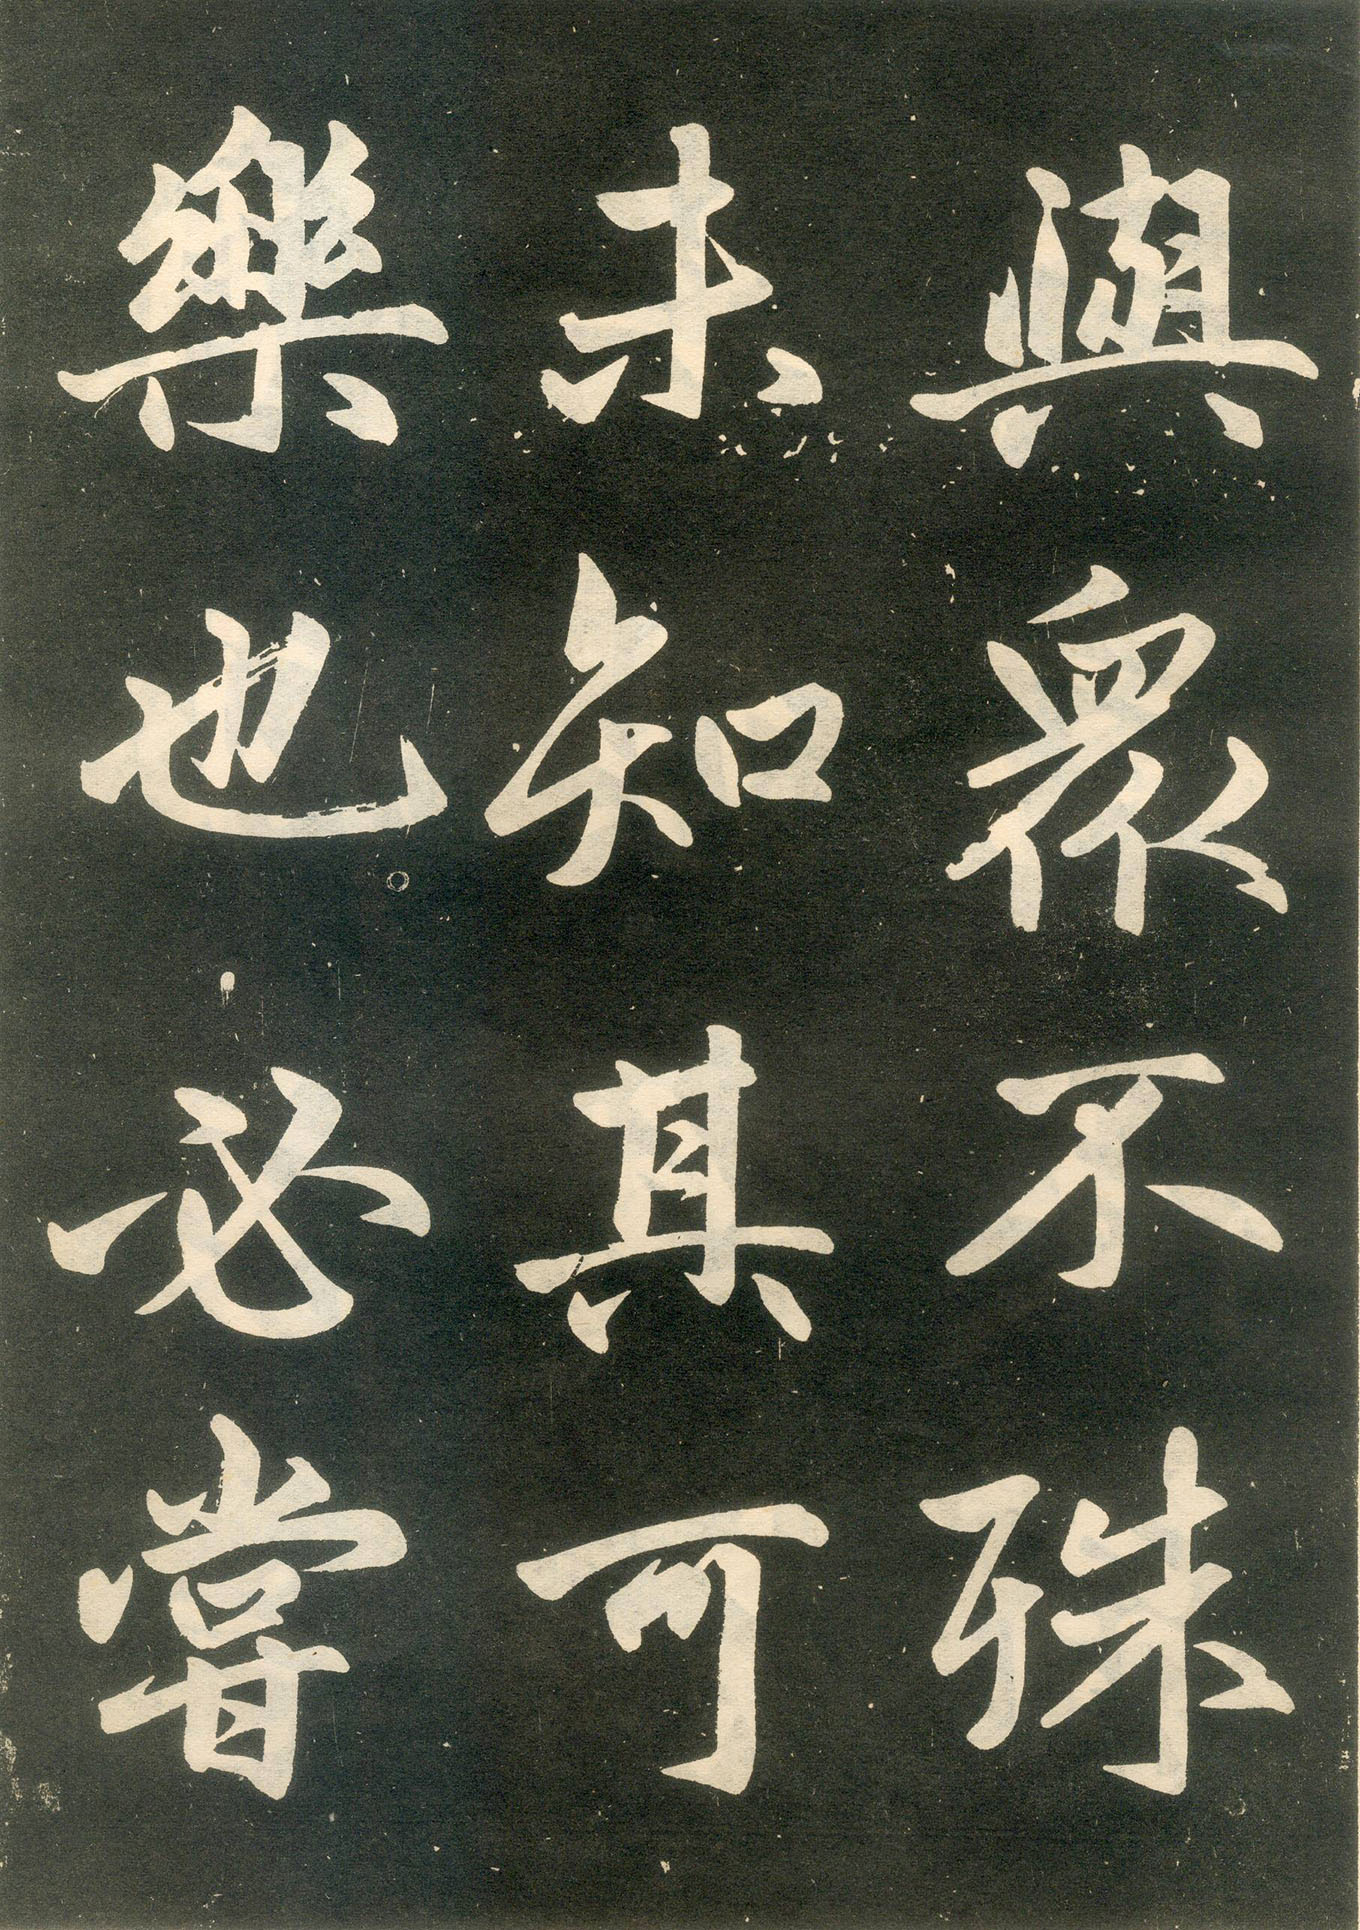 與衆不殊
未知其可
樂也必嘗